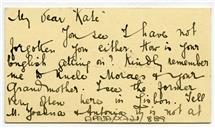 My dear Kate
You see I have not
forgotten you either. How is your
English getting on? Kindly remember
me to Uncle Moraes & your
Grandmother. I see the former
very often here in Lisbon. Tell
M. Joannas & Antonia I is not at